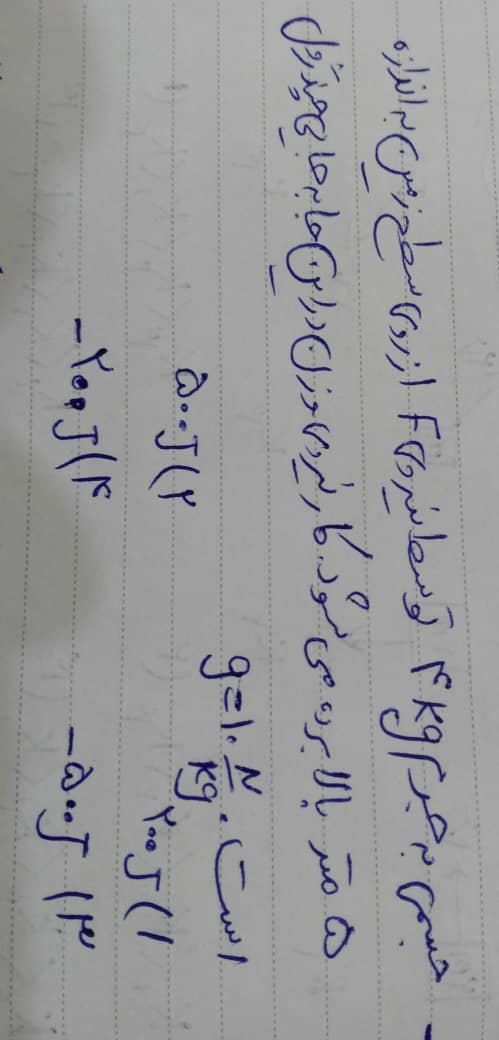 - جسمی به جرم ۴ kg توسط نیروی F از روی سطح زمین به اندازه
۵ متر بالا برده می شود. کار نیروی وزن در این جا به جایی چند ژول
است. g=۱۰ N/kg
۱) ۲۰۰ J ۲) ۵۰۰ J
۳) -۵۰۰ J ۴) -۲۰۰ J